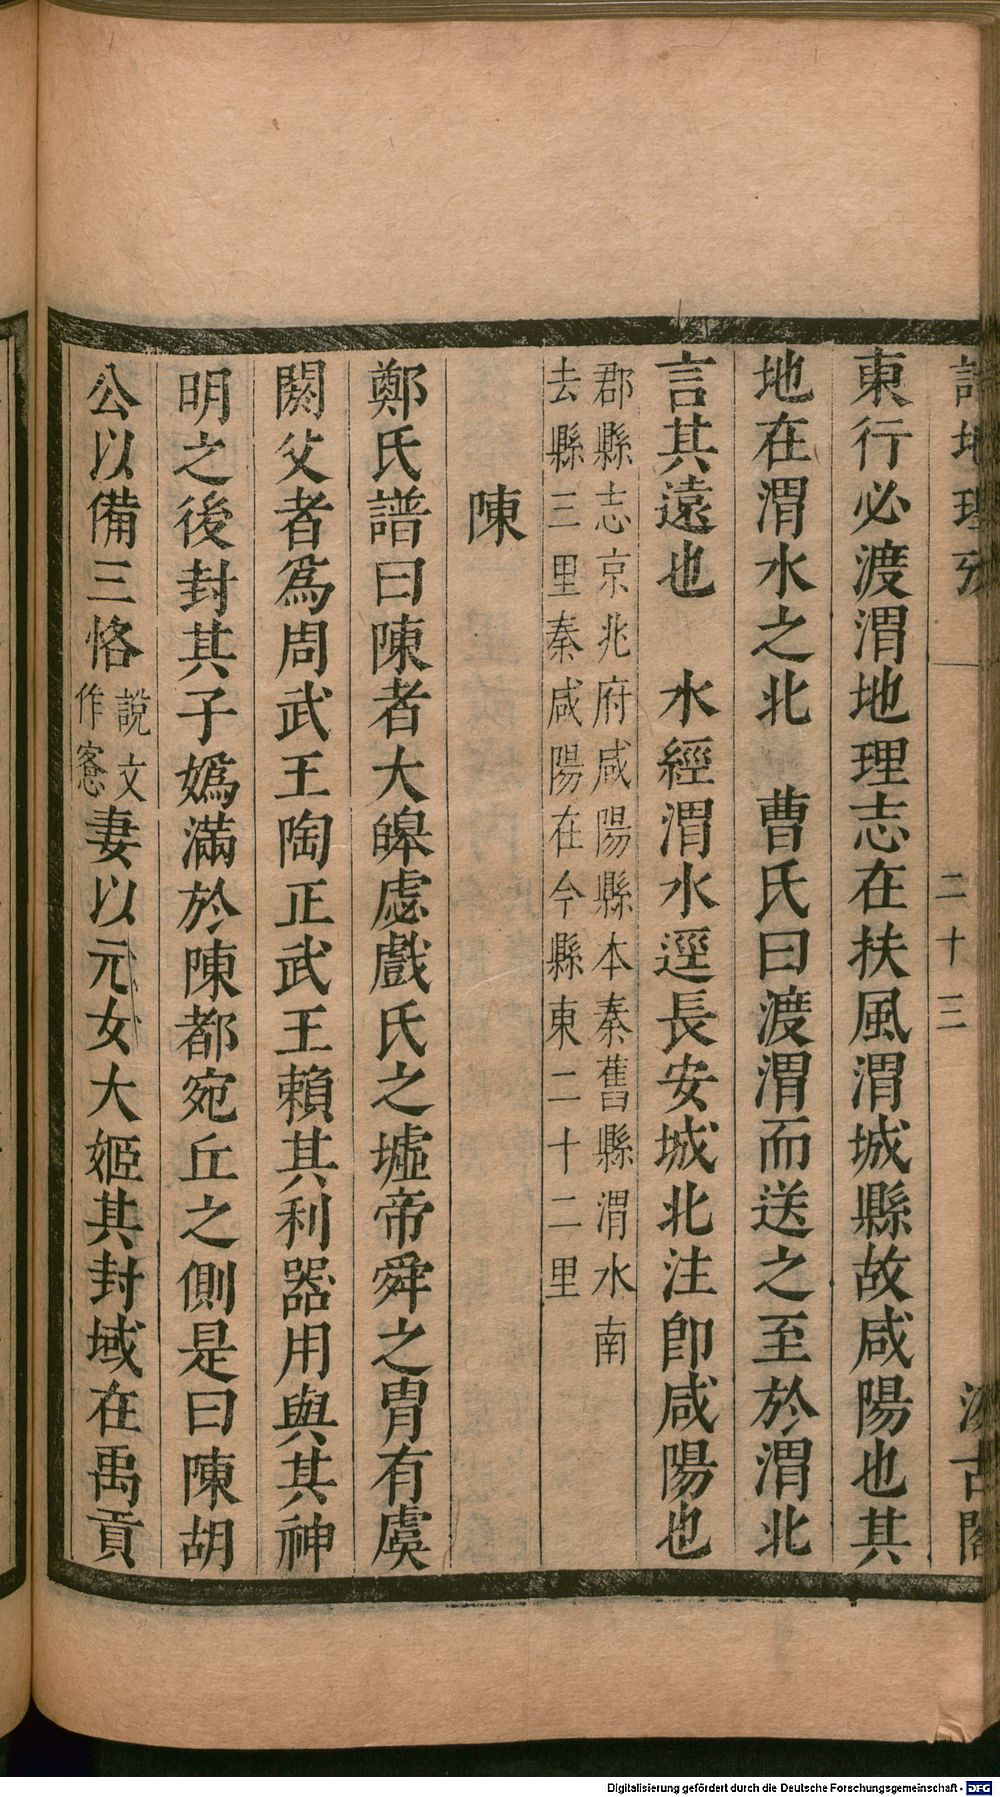 詩地理攷 二十三 汲古閣
東行必渡渭地理志在扶風渭城縣故咸陽也其
地在渭水之北 曹氏曰渡渭而送之至於渭北
言其遠也 水經渭水逕長安城北注卽咸陽也
郡縣志京兆府咸陽縣本秦舊縣渭水南
去縣三里秦咸陽在今縣東二十二里
陳
鄭氏譜曰陳者大皞虙戲氏之墟帝舜之胄有虞
閼父者爲周武王陶正武王賴其利器用與其神
明之後封其子嬀滿於陳都宛丘之側是曰陳胡
公以備三恪說文作愙妻以元女大姬其封域在禹貢
Digitalisierung gefördert durch die Deutsche Forschungsgemeinschaft - DFG